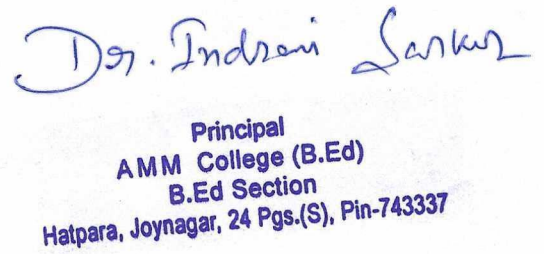 Dr. Indrani Sarkar
Principal
AMM College (B.Ed)
B.Ed Section
Hatpara, Joynagar, 24 Pgs.(S), Pin-743337